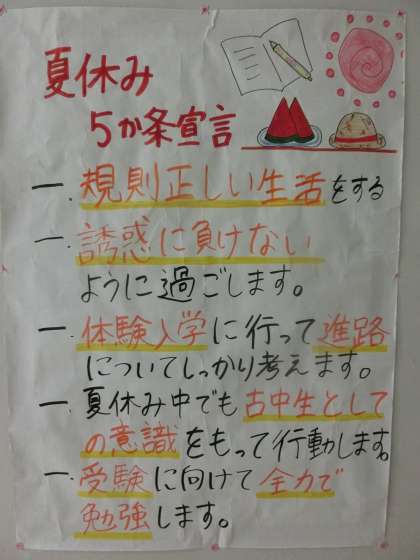 夏休み
5か条宣言
一、規則正しい生活をする
一、誘惑に負けない
ように過ごします。
一、体験入学に行って進路
についてしっかり考えます。
一、夏休み中でも古中生として
の意識をもって行動します。
一、受験に向けて全力で
勉強します。